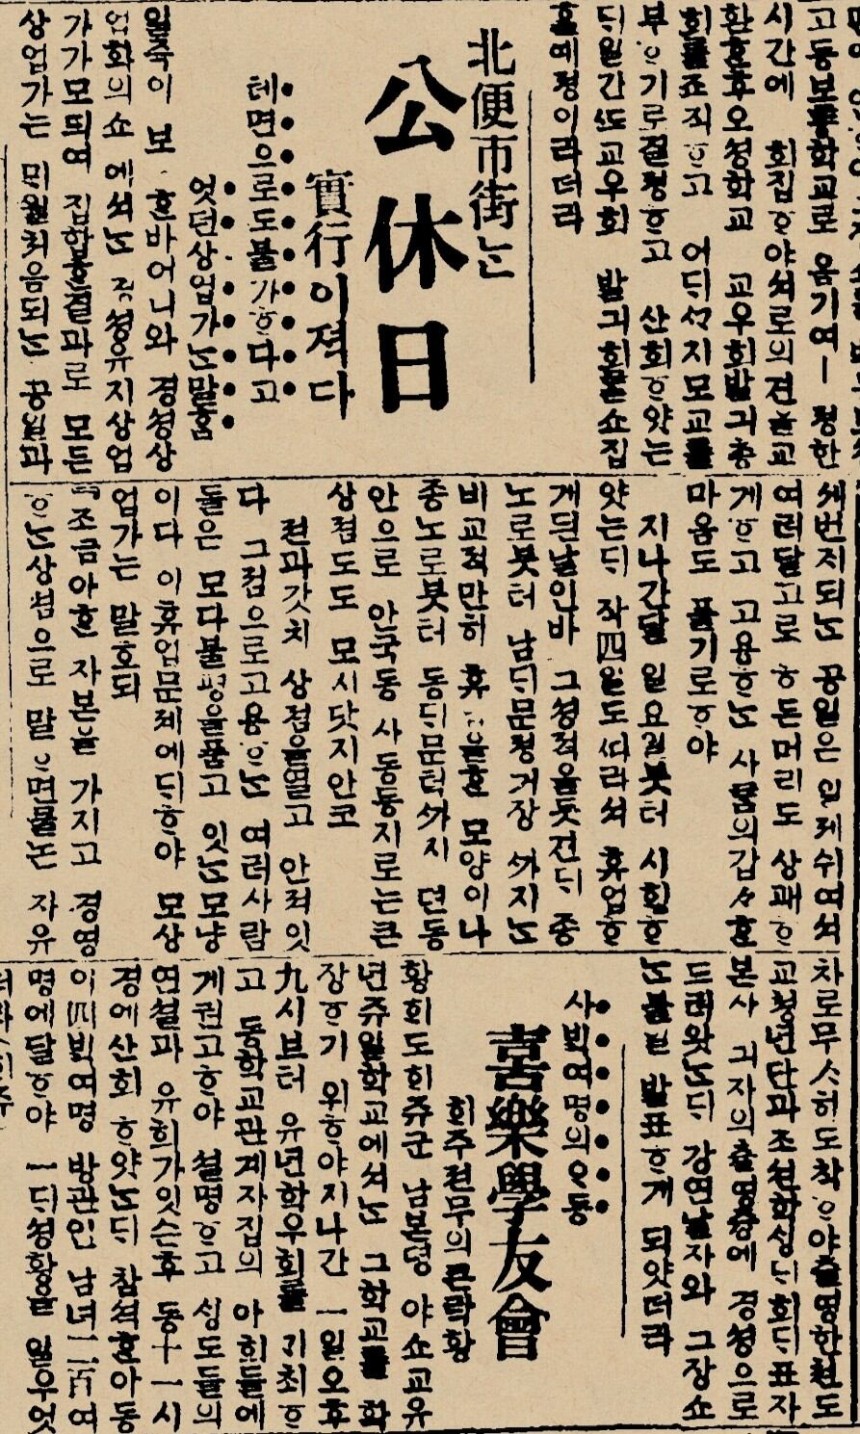 고등보통학교로 옴기여ㅣ 정한
시간에 회집ᄒᆞ야 서로의견을교
환ᄒᆞᆫ후오성학교 교우회발긔총
회를죠직ᄒᆞ고 어ᄃᆡᄭᆞ지모교를
부ᄒᆞ기로결정ᄒᆞ고 산회ᄒᆞ얏는
ᄃᆡ일간ᄯᅩ교우회 발긔회를쇼집
ᄒᆞᆯ예정이라더라
北便市街ᄂᆞᆫ
公休日
實行이젹다
테면으로도불가ᄒᆞ다고
엇던상업가ᄂᆞᆫ말ᄒᆞᆷ
일즉이 보ᄒᆞᆫ바어니와 경성상
업화의쇼에셔ᄂᆞᆫ 경성유지상업
가가모듸여 집합ᄒᆞᆫ결과로 모든
상업가는 ᄆᆡ월처음되ᄂᆞᆫ 공일과
세번ᄌᆡ되ᄂᆞᆫ 공일은 일제쉬여셔
여러달고로ᄒᆞ든머리도 상쾌ᄒᆞ
게ᄒᆞ고 고용ᄒᆞᄂᆞᆫ 사ᄅᆞᆷ의갑갑ᄒᆞᆫ
마음도 풀기로ᄒᆞ야
지나간달 일요일붓터 시험ᄒᆞ
얏는ᄃᆡ 작四일도ᄯᅡ라셔 휴업ᄒᆞ
게된날인바 그성적을듯건ᄃᆡ 종
노로붓터 남ᄃᆡ문정거장 ᄭᆞ지ᄂᆞᆫ
비교적만히 휴업을ᄒᆞᆫ 모양이나
종노로붓터 동ᄃᆡ문턱ᄭᆞ지 뎐동
안으로 안국동 사동등지로는큰
상점도도 모시닷지안코
전과갓치 상점을열고 안져잇
다 그점으로고용ᄒᆞᄂᆞᆫ 여러사람
들은 모다불평을품고 잇ᄂᆞᆫ모냥
이다 이휴업문제에ᄃᆡᄒᆞ야 모상
업가는 말ᄒᆞ되
『조금아ᄒᆞᆫ 자본을 가지고 경영
ᄒᆞᄂᆞᆫ상점으로 말ᄒᆞ면물논 자유
차로무ᄉᆞ히도착ᄒᆞ야출영한텬도
교청년단과조선학성ᄃᆡ회ᄃᆡ표자
본사 긔자의츌영즁에 경성으로
드러왓ᄂᆞᆫᄃᆡ 강연날자와 그장쇼
ᄂᆞᆫ불일 발표ᄒᆞ게 되얏더라
사ᄇᆡᆨ여명의ᄋᆞ동
喜樂學友會
ᄒᆡ쥬젼무의큰락황
황ᄒᆡ도ᄒᆡ쥬군 남본뎡 야쇼교유
년쥬일학교에셔ᄂᆞᆫ 그학교를 확
장ᄒᆞ기 위ᄒᆞ야지나간 一일오후
九시브터 유년학우회를 ᄀᆡ최ᄒᆞ
고 동학교관계자집의 아희들에
게권고ᄒᆞ야 셜명ᄒᆞ고 싱도들의
연셜과 유희가잇슨후 동十一시
경에산회ᄒᆞ얏ᄂᆞᆫᄃᆡ 참셕ᄒᆞᆫ아동
이四ᄇᆡᆨ여명 방관인 남녀二百여
명에달ᄒᆞ야 一ᄃᆡ셩황을 일우엇